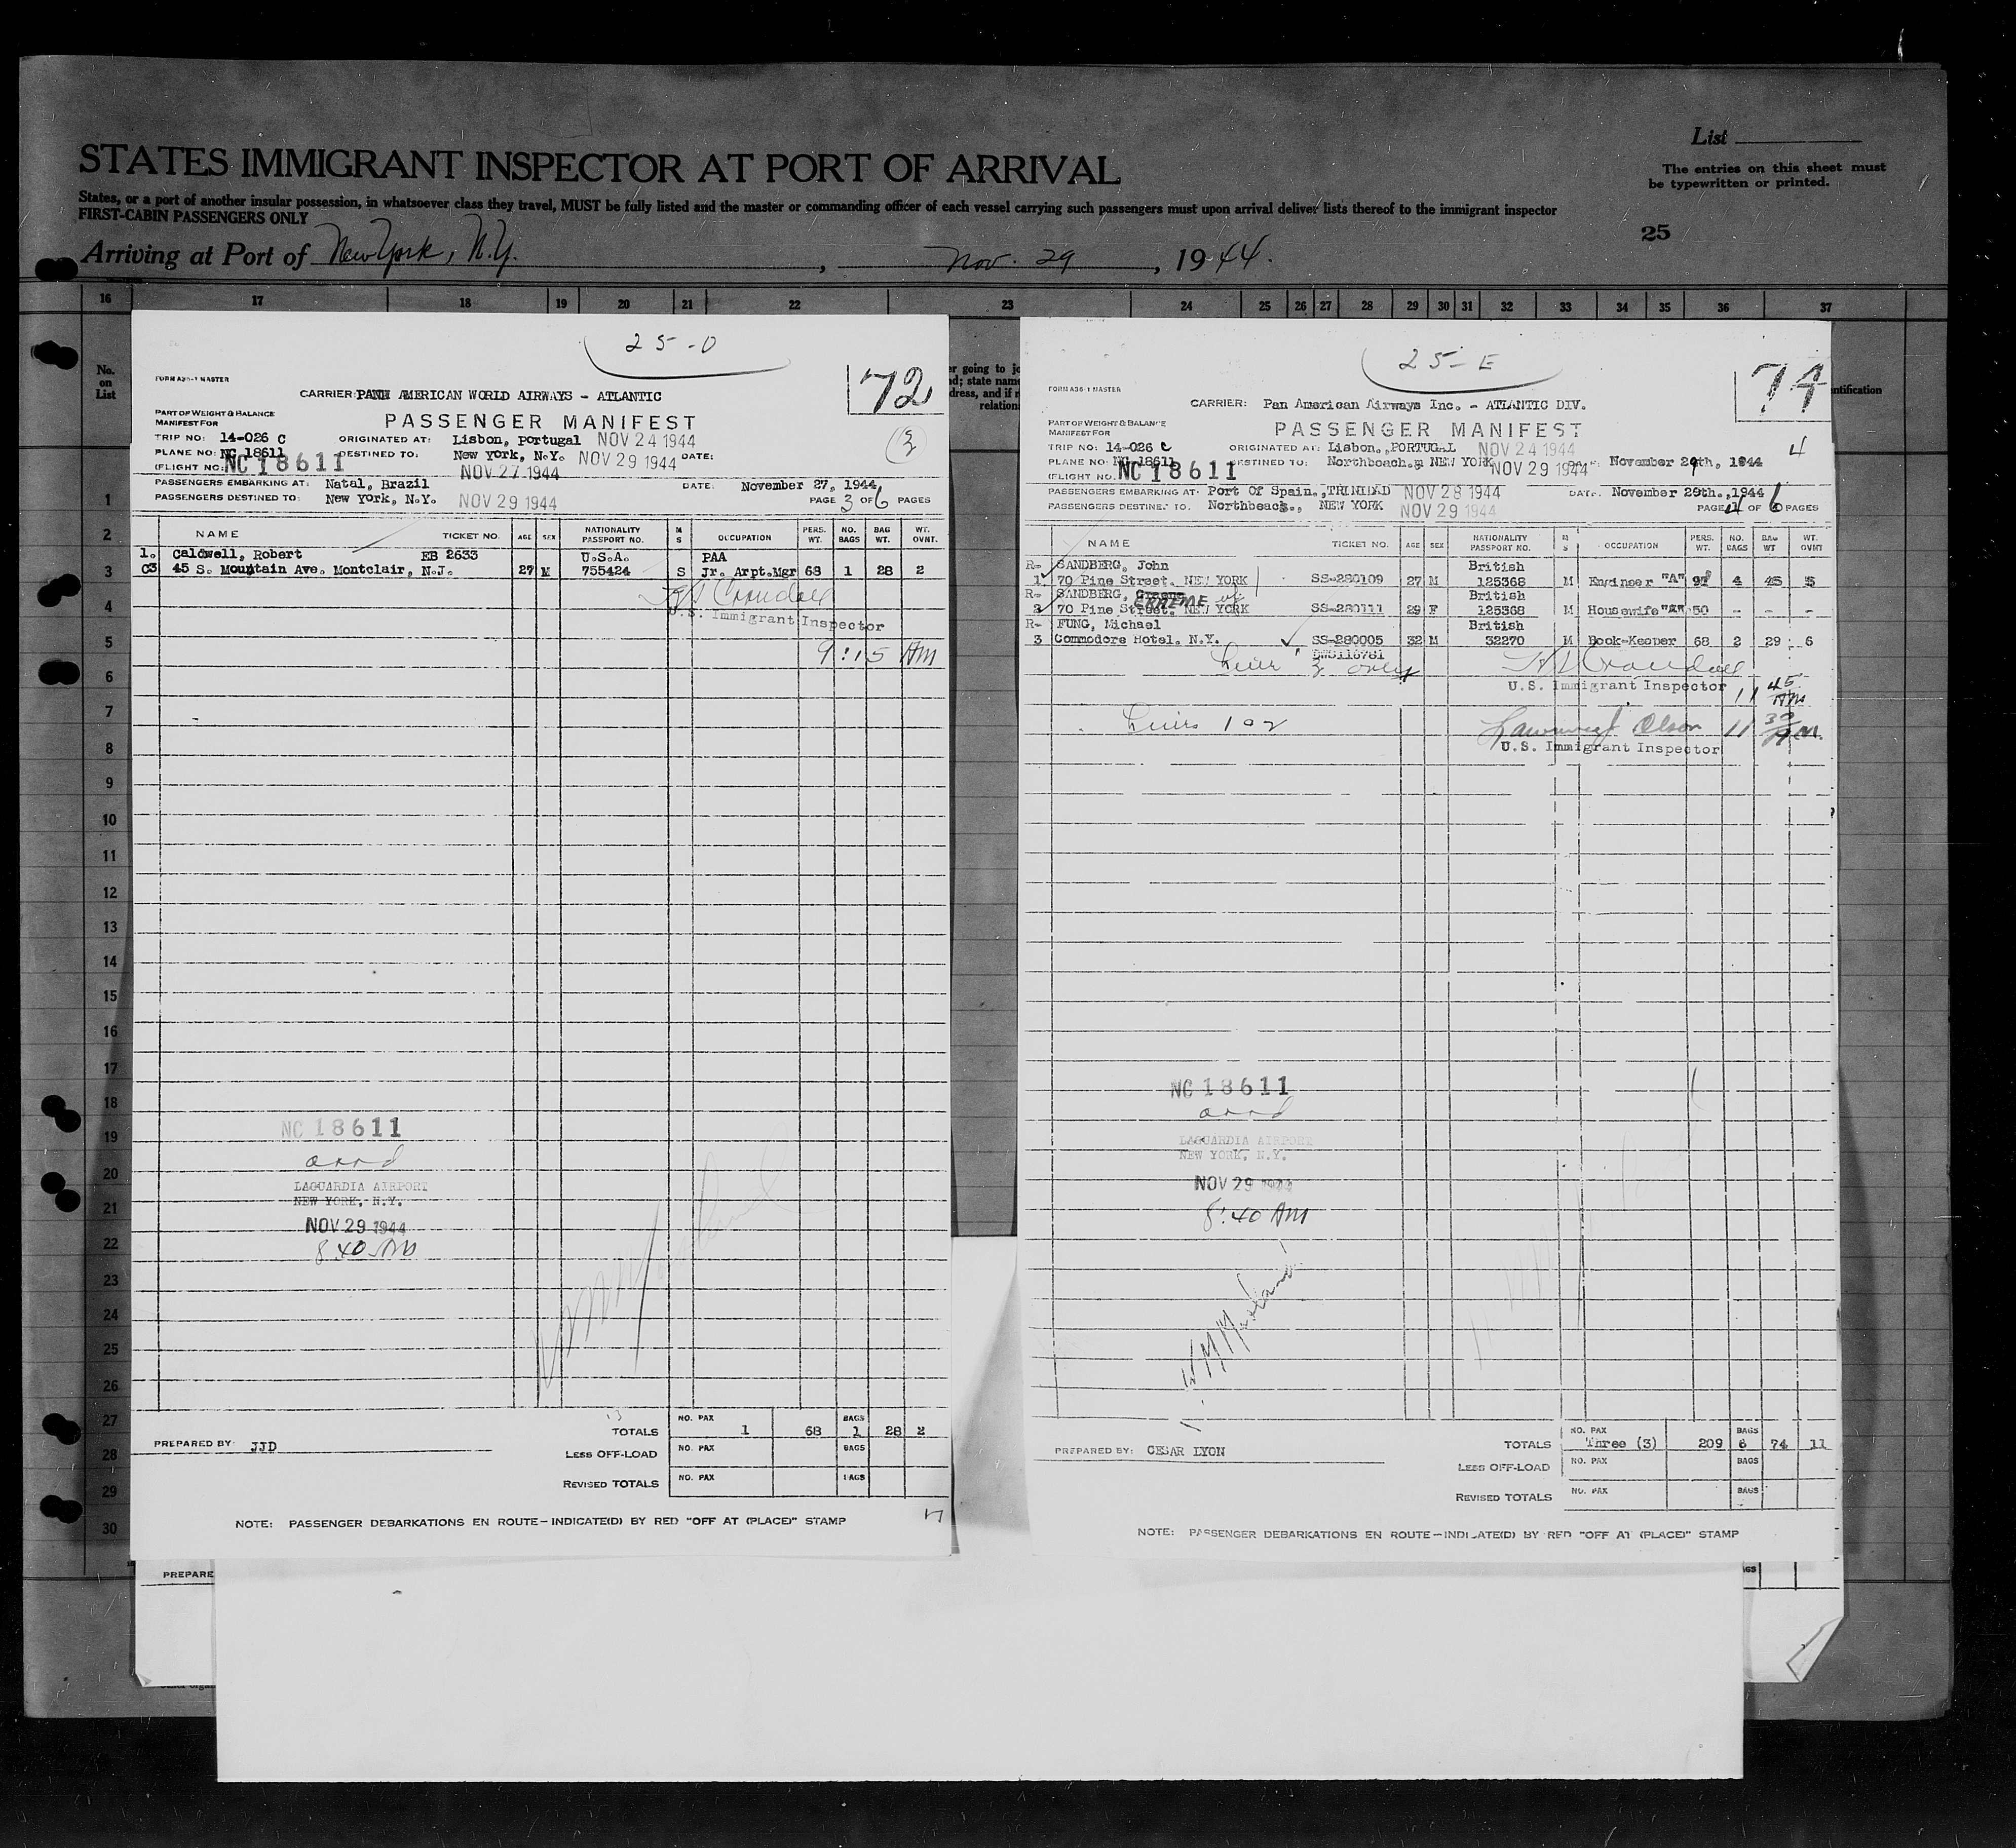 List
STATES IMMIGRANT INSPECTOR AT PORT OF ARRIVAL
The entries on this sheet must
be typewritten or printed.
States, or a port of another insular possession, in whatsoever class they travel, MUST be fully listed and the master or commanding officer of each vessel carrying such passengers must upon arrival deliver lists thereof to the immigrant inspector
FIRST-CABIN PASSENGERS ONLY
25
Arriving at Port of New York, N.Y. , Nov. 29 , 1944.
16 17 18 19 20 21 22 23 24 25 26 27 28 29 30 31 32 33 34 35 36 37
No.
on
List
1
2
3
4
5
6
7
8
9
10
11
12
13
14
15
16
17
18
19
20
21
22
23
24
25
26
27
28
29
30
25-D
72
FORM A36-1 MASTER
CARRIER: AMERICAN WORLD AIRWAYS - ATLANTIC
PART OF WEIGHT & BALANCE
MANIFEST FOR
PASSENGER MANIFEST
3
TRIP NO: 14-026 C ORIGINATED AT: Lisbon, Portugal NOV 24 1944
PLANE NO: NC 18611 DESTINED TO: New York, N.Y. NOV 29 1944 DATE:
(FLIGHT NO: NC 18611 NOV 27 1944
PASSENGERS EMBARKING AT: Natal, Brazil DATE: November 27, 1944
PASSENGERS DESTINED TO: New York, N.Y. NOV 29 1944 PAGE 3 OF 6 PAGES
NAME TICKET NO. AGE SEX NATIONALITY PASSPORT NO. M S OCCUPATION PERS. WT. NO. BAGS BAG WT. WT. OVNT.
1. Caldwell, Robert EB 2633 U.S.A. PAA
C3 45 S. Mountain Ave. Montclair, N.J. 27 M 755424 S Jr. Arpt.Mgr 68 1 28 2
Crandall
U.S. Immigrant Inspector
9:15 AM
NC 18611
arrd
LAGUARDIA AIRPORT
NEW YORK, N.Y.
NOV 29 1944
8:40 AM
TOTALS NO. PAX 1 68 BAGS 1 28 2
PREPARED BY: JJD
LESS OFF-LOAD NO. PAX BAGS
REVISED TOTALS NO. PAX BAGS
NOTE: PASSENGER DEBARKATIONS EN ROUTE—INDICATE(D) BY RED "OFF AT (PLACE)" STAMP
PREPARE
25-E
74
FORM A36-1 MASTER
CARRIER: Pan American Airways Inc. - ATLANTIC DIV.
PART OF WEIGHT & BALANCE
MANIFEST FOR
PASSENGER MANIFEST
4
TRIP NO: 14-026 C ORIGINATED AT: Lisbon., PORTUGAL NOV 24 1944
PLANE NO: NC 18611 DESTINED TO: Northbeach., NEW YORK NOV 29 1944 November 29th, 1944
(FLIGHT NO. NC 18611
PASSENGERS EMBARKING AT: Port Of Spain., TRINIDAD NOV 28 1944 DATE: November 29th.,1944
PASSENGERS DESTINED TO. Northbeach., NEW YORK NOV 29 1944 PAGE 4 OF 6 PAGES
NAME TICKET NO. AGE SEX NATIONALITY PASSPORT NO. M S OCCUPATION PERS. WT. NO. BAGS BAG WT WT. OVNT
R- SANDBERG, John British
1 70 Pine Street. NEW YORK SS-280109 27 M 125368 M Engineer "A" 91 4 45 5
R- SANDBERG, British
2 70 Pine Street. NEW YORK SS-280111 29 F 125368 M Housewife "A" 50 - - -
R- FUNG, Michael British
3 Commodore Hotel. N.Y. SS-280005 32 M 32270 M Book-Keeper 68 2 29 6
3 only Crandall
U.S. Immigrant Inspector 11 45 AM
1 & 2 Olson 11 30 AM
U.S. Immigrant Inspector
NC 18611
arrd
LAGUARDIA AIRPORT
NEW YORK, N.Y.
NOV 29 1944
8:40 AM
TOTALS NO. PAX Three (3) 209 BAGS 6 74 11
PREPARED BY: CESAR LYON
LESS OFF-LOAD NO. PAX BAGS
REVISED TOTALS NO. PAX BAGS
NOTE: PASSENGER DEBARKATIONS EN ROUTE—INDICATE(D) BY RED "OFF AT (PLACE)" STAMP